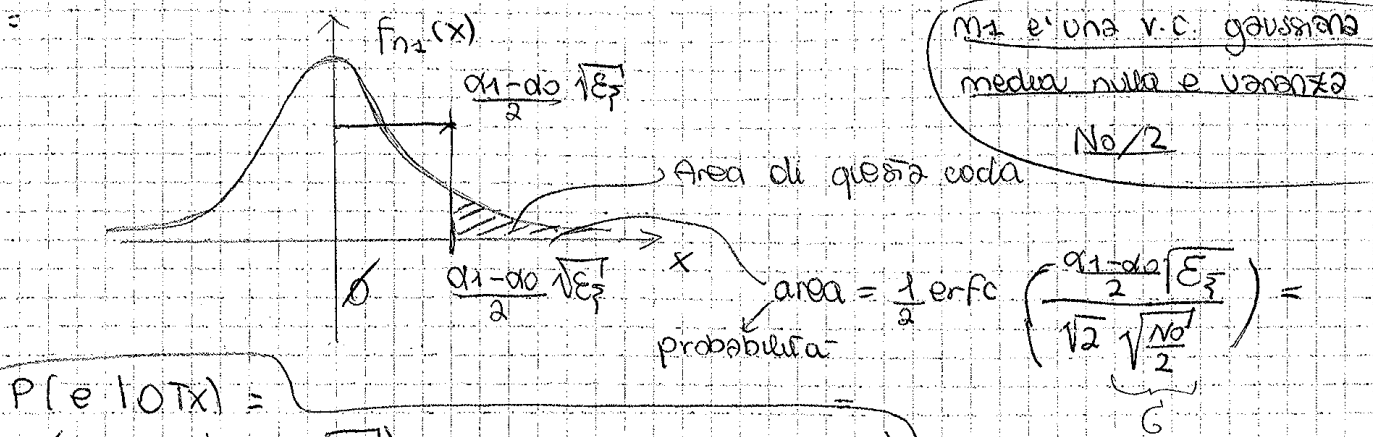 =
f_{n1}(x)
n1 e' una v.c. gaussiana
media nulla e varianza
No/2
α1-α0/2 √Eξ
Area di questa coda
x
0
α1-α0/2 √Eξ
area = 1/2 erfc ( (α1-α0/2 √Eξ) / (√2 √(No/2)) ) =
probabilita'
σ
P(e|0Tx) =
=